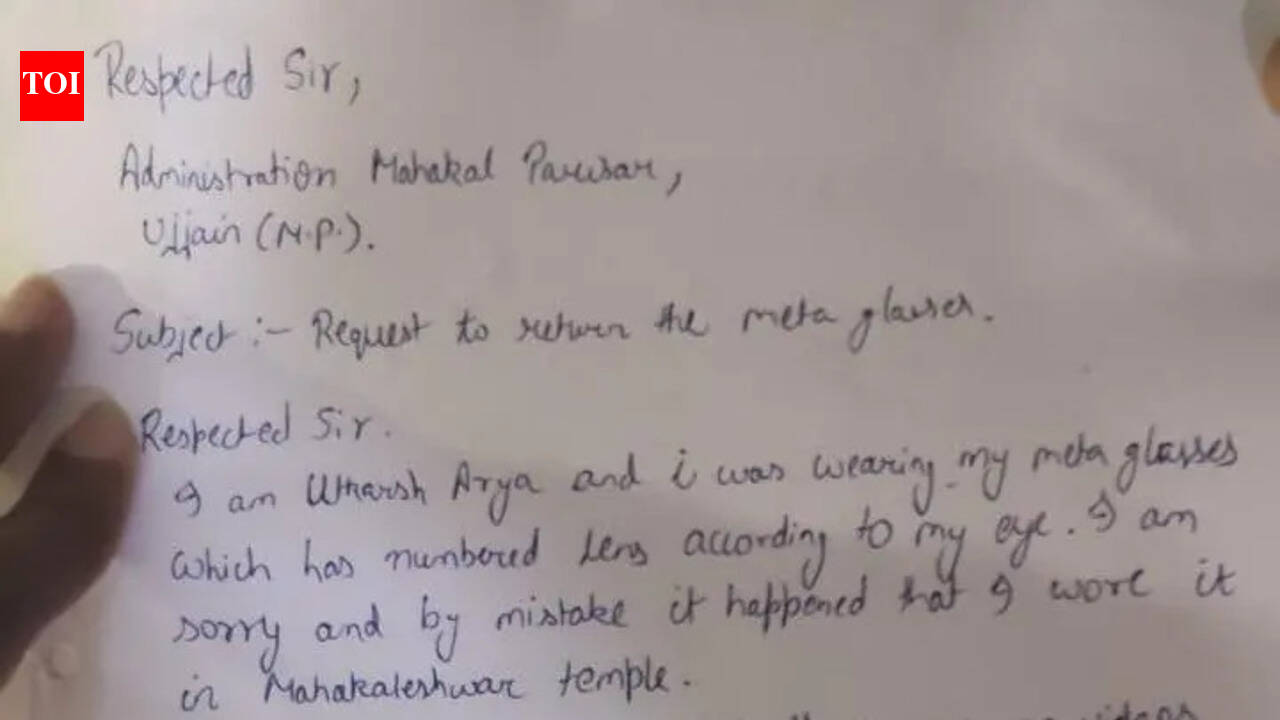 TOI
Respected Sir,
Administration Mahakal Parisar,
Ujjain (M.P.).
Subject :- Request to return the meta glasses.
Respected Sir.
I am Utkarsh Arya and i was wearing my meta glasses
which has numbered lens according to my eye. I am
sorry and by mistake it happened that I wore it
in Mahakaleshwar temple.
videos